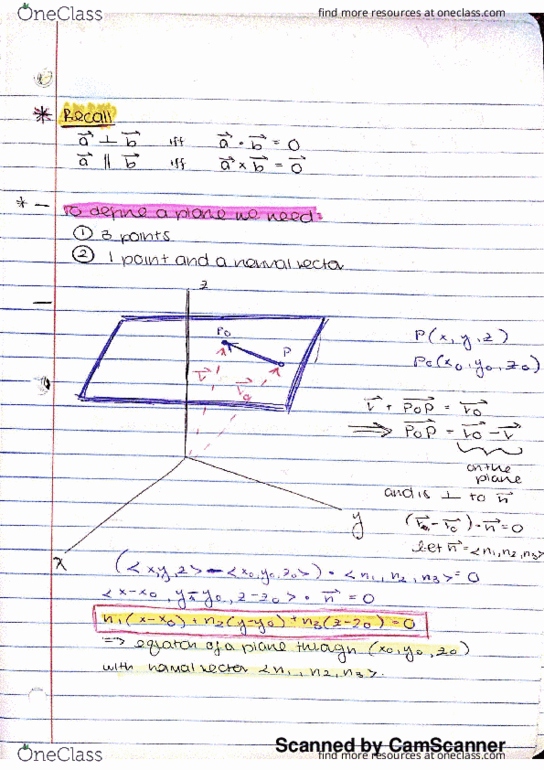 OneClass
find more resources at oneclass.com
* Recall
a⃗ ⊥ b⃗ iff a⃗ • b⃗ = 0
a⃗ ∥ b⃗ iff a⃗ × b⃗ = 0⃗
* — To define a plane we need:
① 3 points
② 1 point and a normal vector
—
z
P0
P
r⃗
r⃗0
y
x
P(x, y, z)
P0(x0, y0, z0)
r⃗ + P0P = r⃗0
⟹ P0P = r⃗0 - r⃗
on the
plane
and is ⊥ to n⃗
- r⃗0) • n⃗ = 0
let n⃗ = <n1, n2, n3>
(<x, y, z> - <x0, y0, z0>) • <n1, n2, n3> = 0
<x-x0, y-y0, z-z0> • n⃗ = 0
n1(x-x0) + n2(y-y0) + n3(z-z0) = 0
=> equation of a plane through (x0, y0, z0)
with normal vector <n1, n2, n3>.
Scanned by CamScanner
OneClass
find more resources at oneclass.com